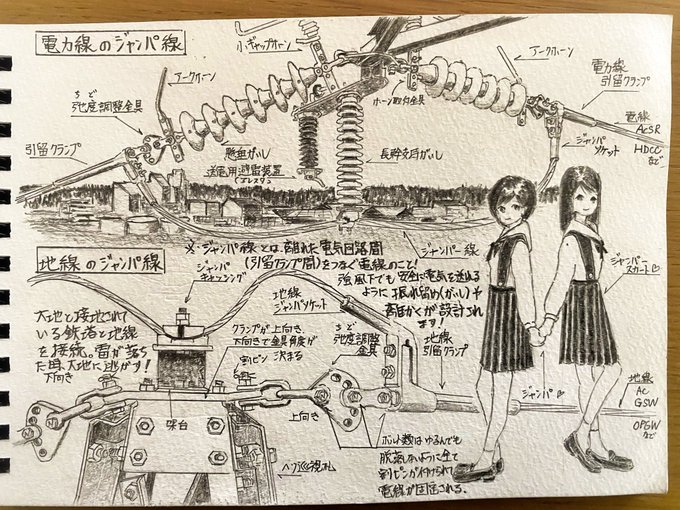 電力線のジャンパ線
小ギャップホーン
アークホーン
アークホーン
ちど
弛度調整金具
引留クランプ
懸垂がいし
送電用避雷装置
(アレスタ)
ホーン取付金具
長幹支持がいし
電力線
引留クランプ
電線
ACSR
HDCC
など
ジャンパ
ソケット
ジャンパー線
※・ジャンパ線とは離れた電気回路間
(引留クランプ間)をつなぐ電線のこと!
強風下でも安全に電気を送れる
ように振れ留め(がい)や
が設計され
ます!
地線のジャンパ線
ジャンパ
大地と接地されて
いる鉄塔と地線
を接続。雷が落ち
た時、大地に逃がす!
下向き
クランプが上向き、
下向きで金具角度が
決まる
割ピン
地線
ジャンパソケット
ちど
弛度調整
金具
地線
引留クランプ
架台
上向き
ジャンパー
スカート
ジャンパ
地線
AC
GSW
OPGW
など
ボルト類はゆるんでも
脱落しないように全て
割ピンが付けられて
電線が固定される。